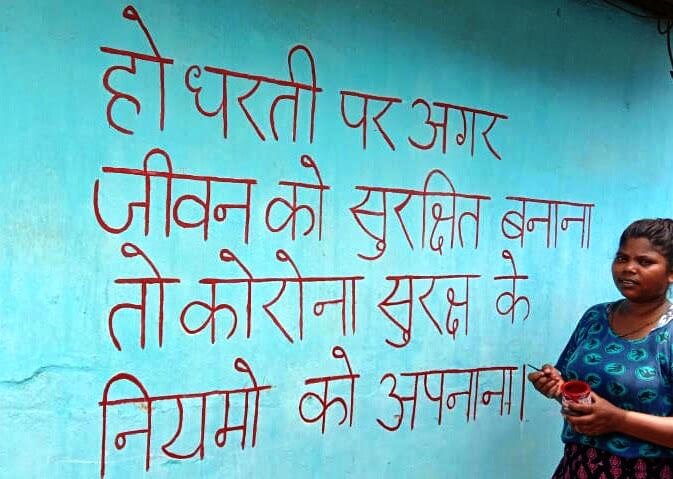 हो धरती पर अगर
जीवन को सुरक्षित बनाना
तो कोरोना सुरक्ष के
नियमो को अपनाना।